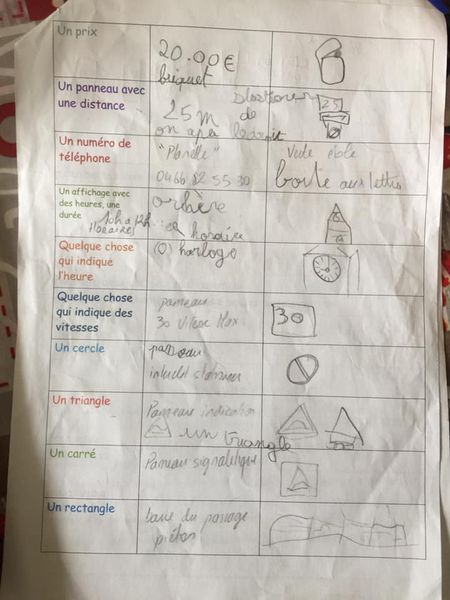 Un prix
20.00€
briquet
Un panneau avec
une distance
25 m
de
on a pas le droit
25
Un numéro de
téléphone
0466 82 55 30
boite aux lettres
Un affichage avec
des heures, une
durée
Horaires
horaire
Quelque chose
qui indique
l'heure
horlogo
Quelque chose
qui indique des
vitesses
panneau
30 vitesse Max
30
Un cercle
Un triangle
Panneau indication
un truangle
Un carré
Panneau signalitique
Un rectangle
du passage
piéton